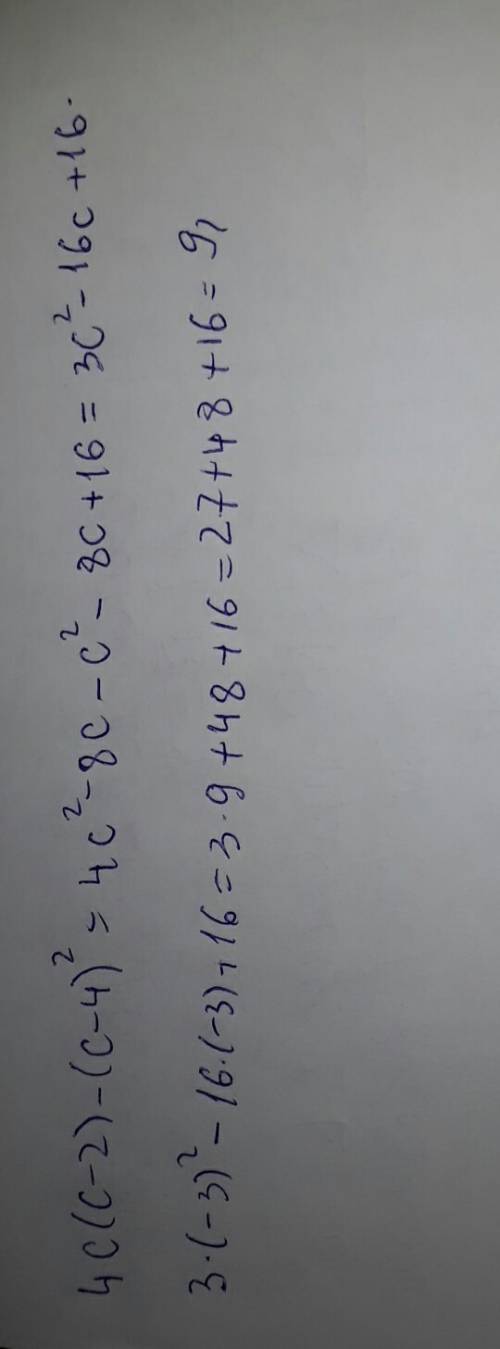 4c(c-2)-(c-4)² = 4c² - 8c - c² - 8c + 16 = 3c² - 16c + 16.
3·(-3)² - 16·(-3) + 16 = 3·9 + 48 + 16 = 27 + 48 + 16 = 91